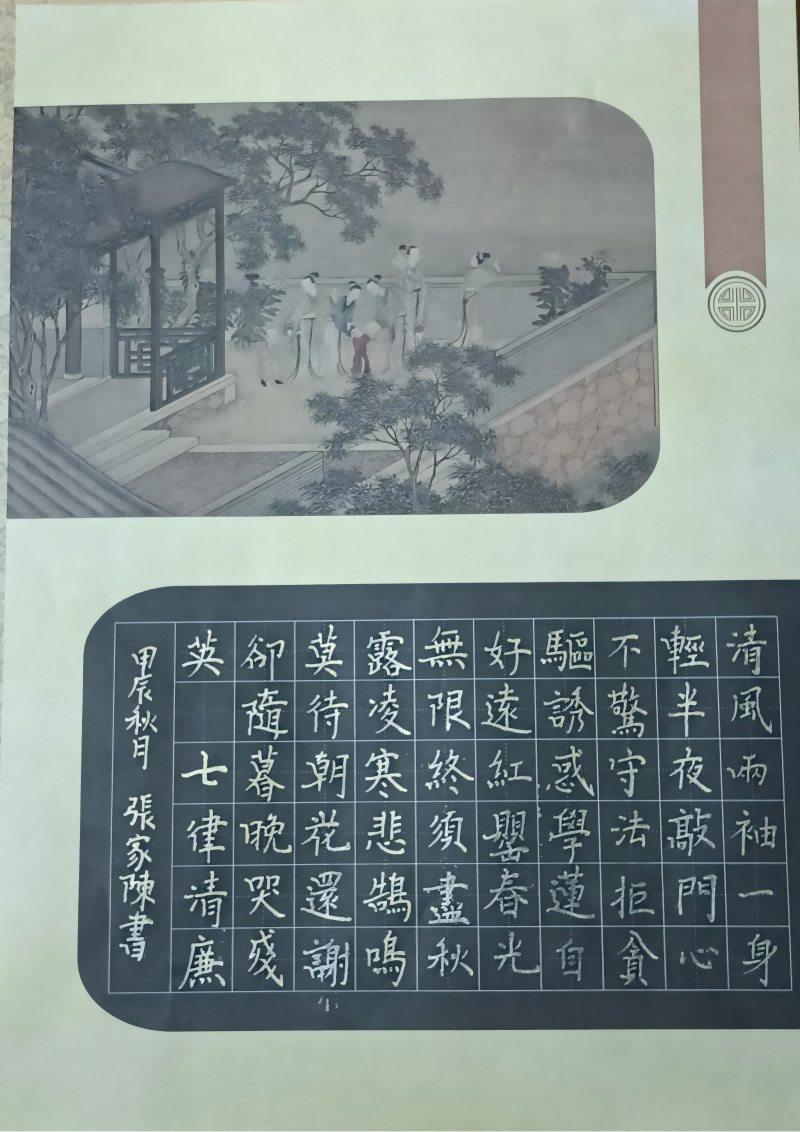 清風兩袖一身
輕半夜敲門心
不驚守法拒貪
驅誘惑學蓮自
好遠紅罌春光
無限終須盡秋
露凌寒悲鵠鳴
莫待朝花還謝
卻隨暮晚哭
英 七律清廉
甲辰秋月 張家陳書